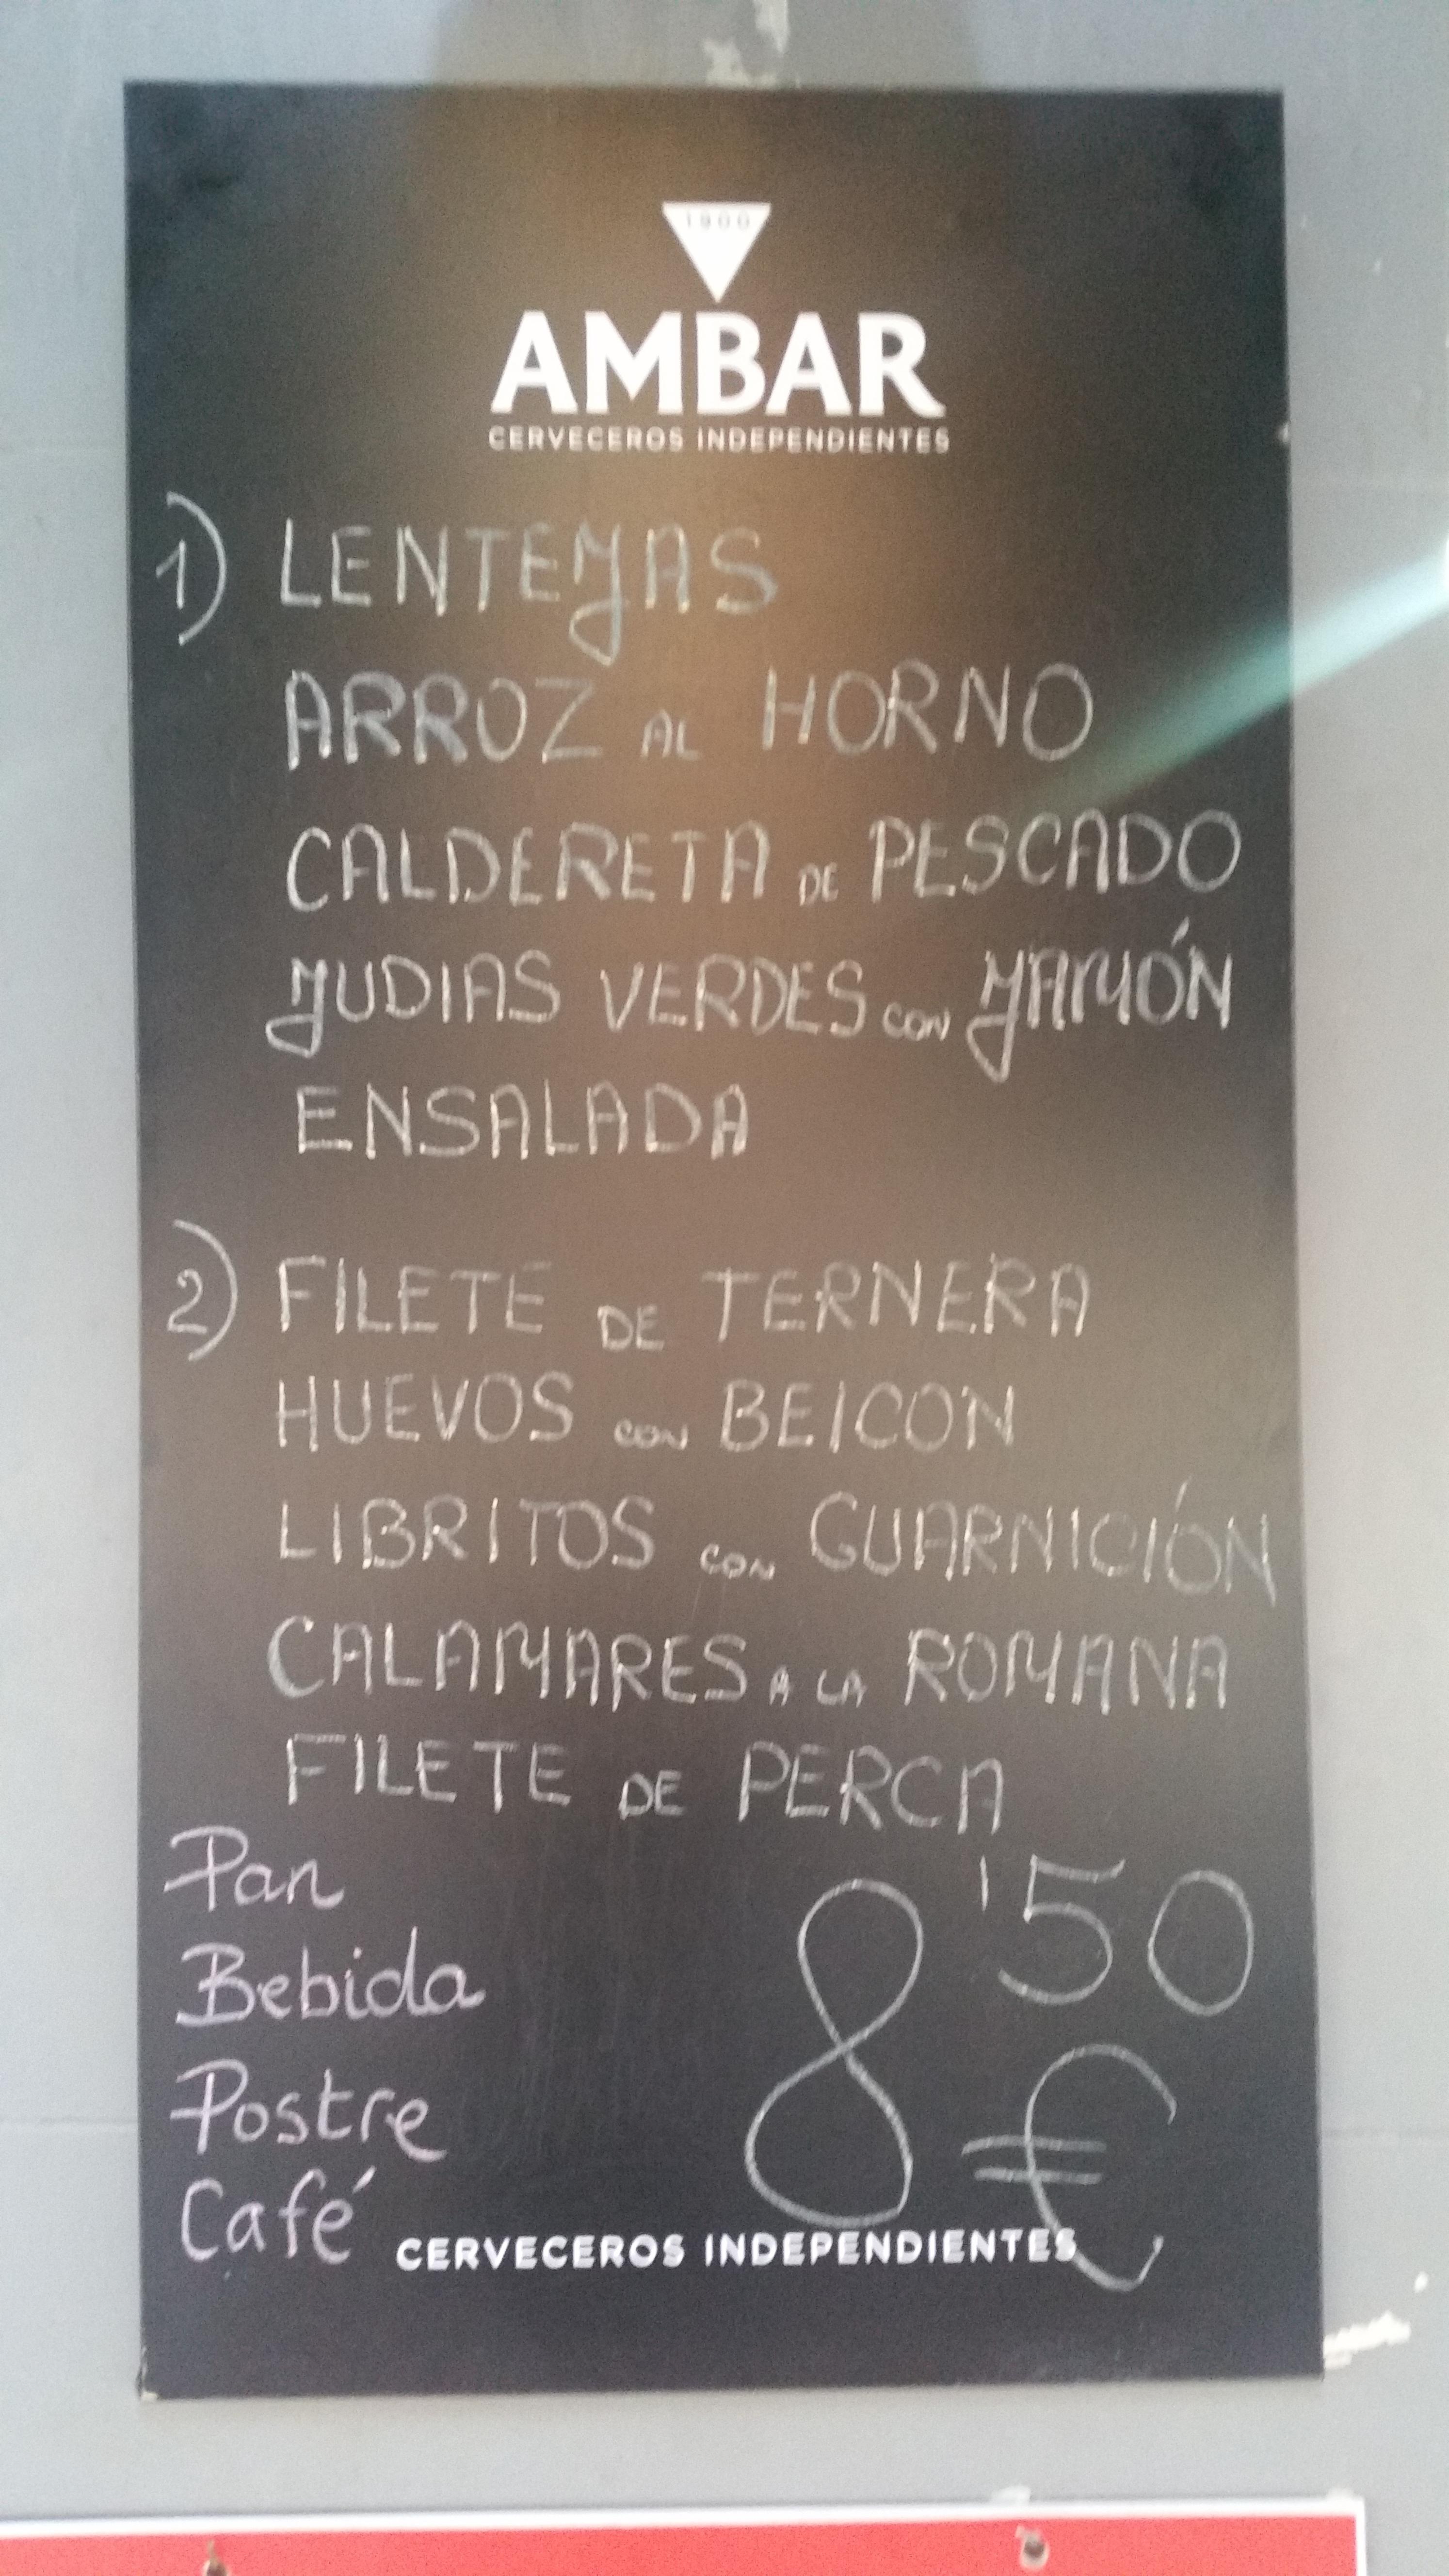 1900
AMBAR
CERVECEROS INDEPENDIENTES
1) LENTEJAS
ARROZ AL HORNO
CALDERETA DE PESCADO
JUDIAS VERDES CON JAMÓN
ENSALADA
2) FILETE DE TERNERA
HUEVOS CON BEICON
LIBRITOS CON GUARNICIÓN
CALAMARES A LA ROMANA
FILETE DE PERCA
Pan
Bebida
Postre
Café
8'50 €
CERVECEROS INDEPENDIENTES